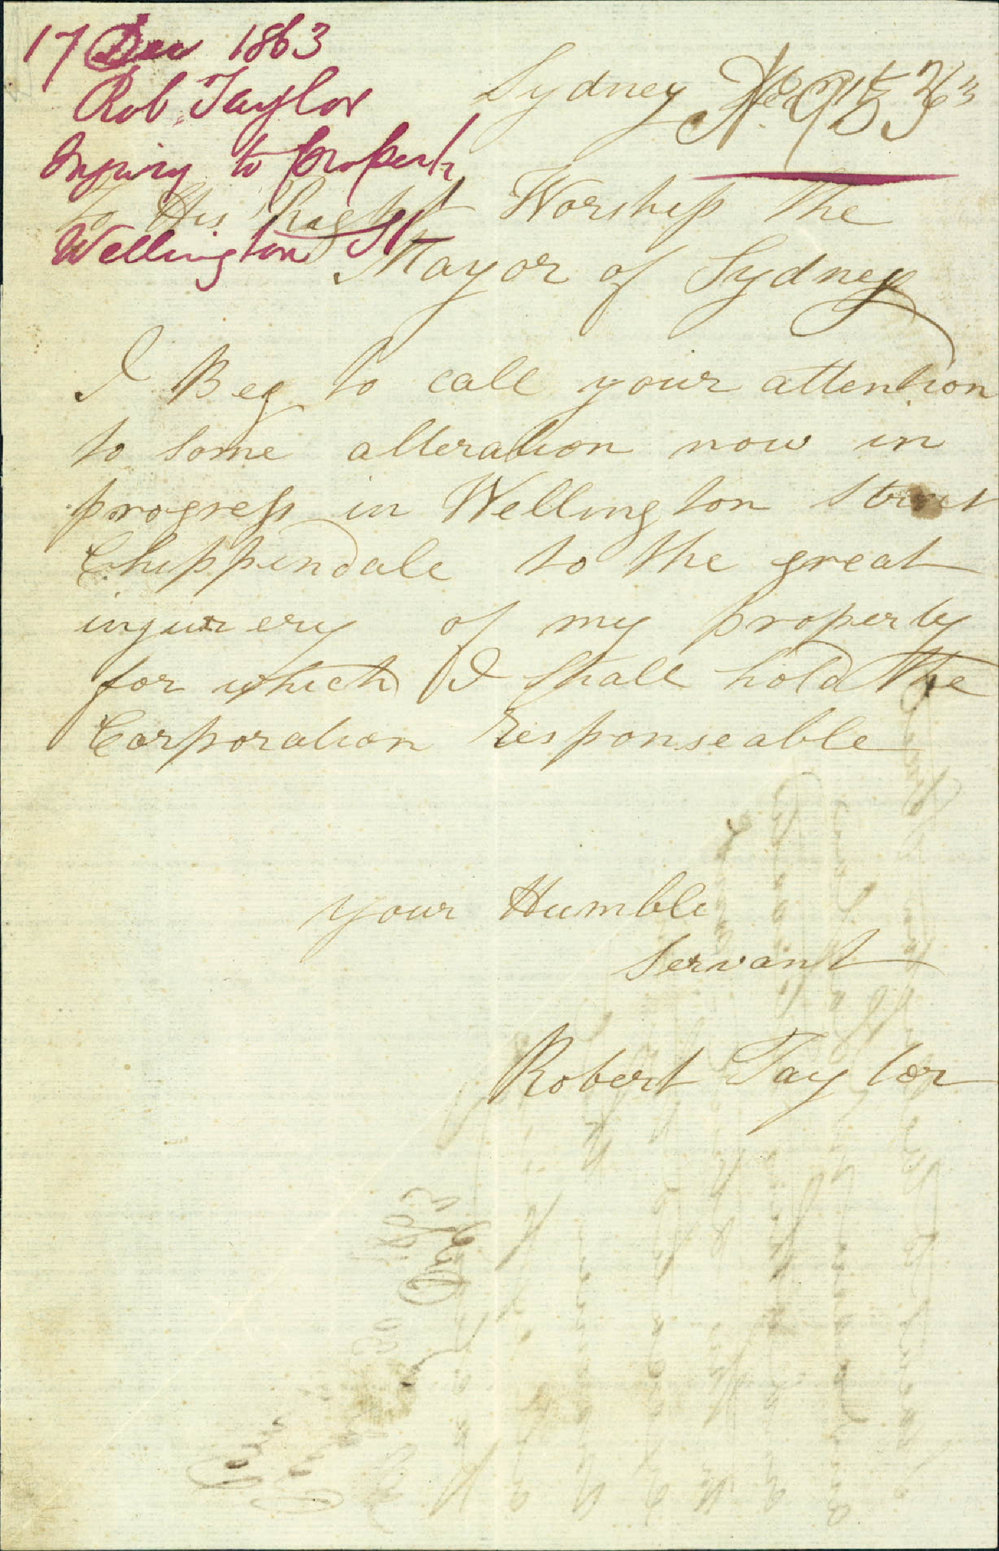 17 Dec 1863
Rob. Taylor
Injury to Property
Wellington St
Sydney
To His Right Worship The
Mayor of Sydney
I Beg to call your attention
to some alteration now in
progress in Wellington Street
Chippendale to the great
injurery of my property
for which I shall hold the
Corporation Responseable
your Humble
servant
Robert Taylor